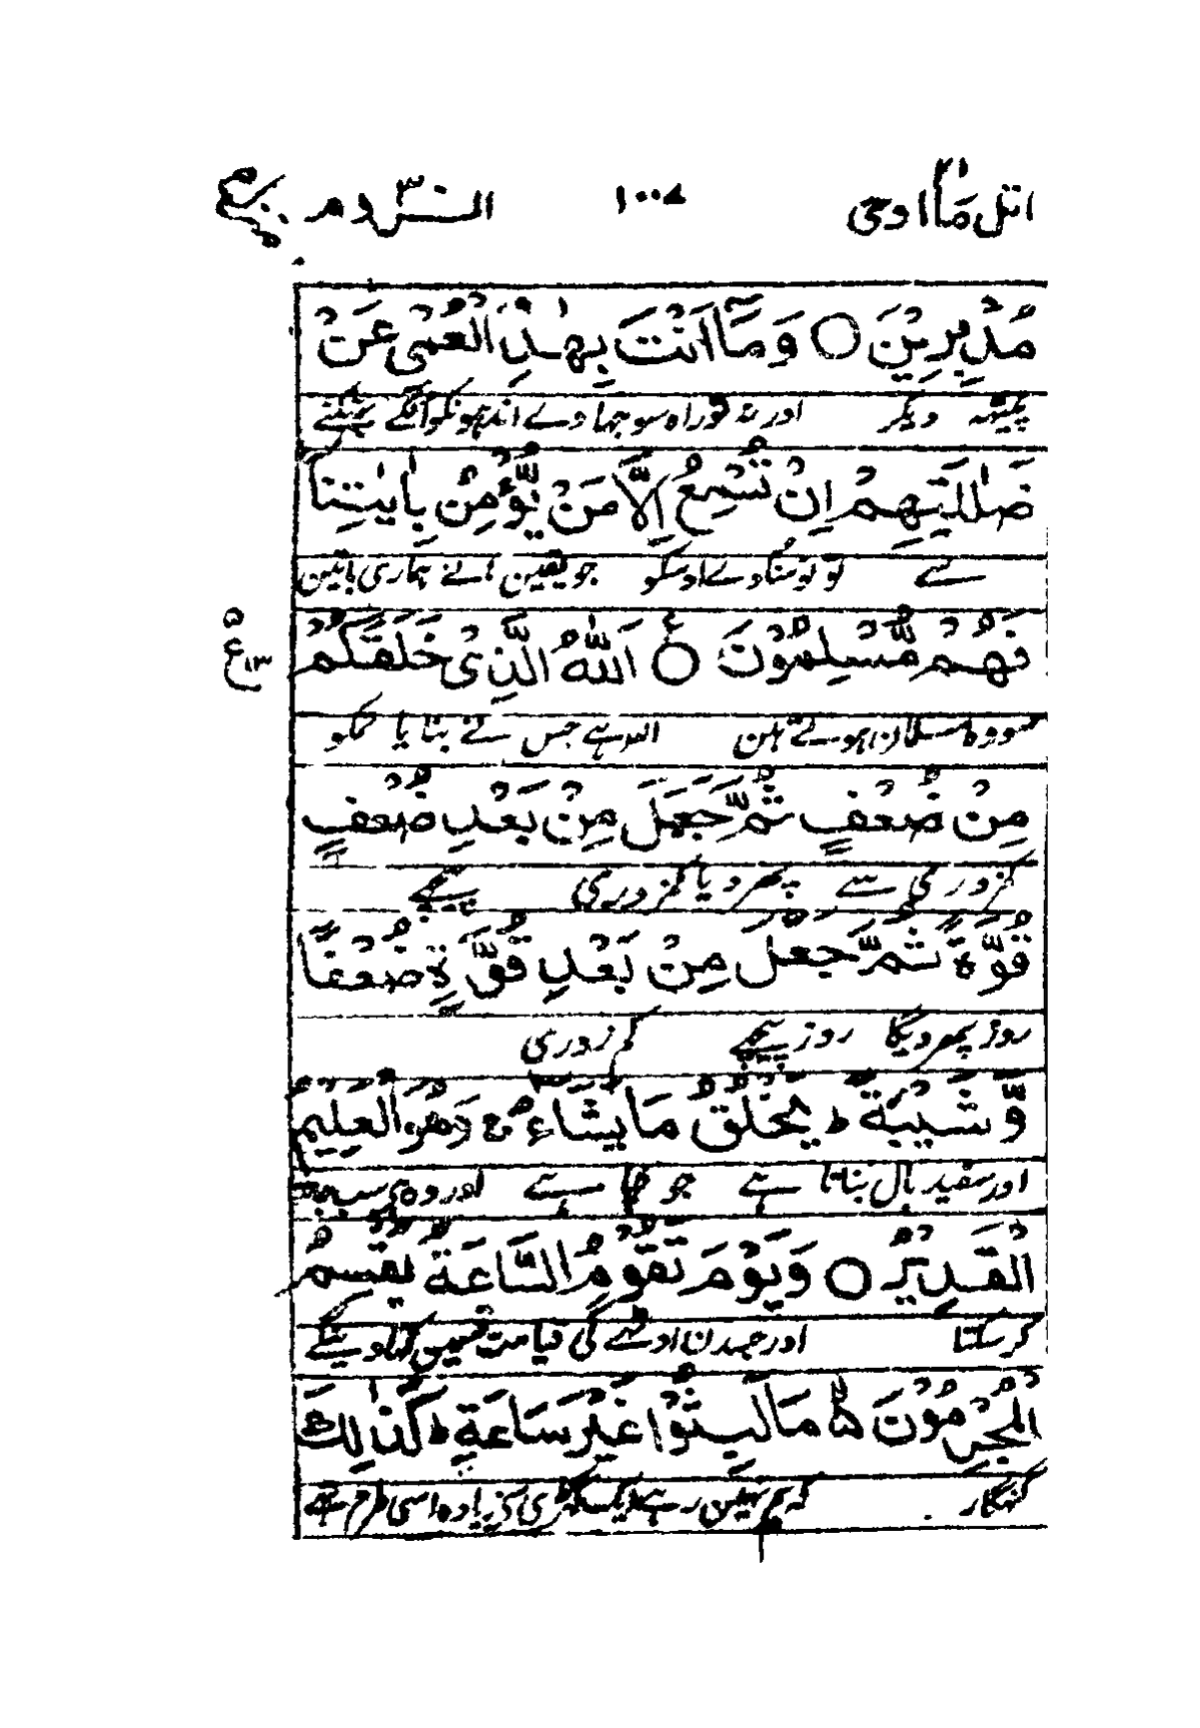 اتل ما اوحی ۲۱ ۱۰۰۸ الروم ۳۰
مُدْبِرِیْنَ ○ وَمَآ اَنْتَ بِھٰدِ الْعُمْیِ عَنْ
پیٹھ دیکر اور نہ تو راہ سوجھا دے اندھونکو انکے بھٹکنے
ضَلٰلَتِهِمْ اِنْ تُسْمِعُ اِلَّا مَنْ یُّؤْمِنُ بِاٰیٰتِنَا
سے تو تو سنا دے اوسکو جو یقین لائے ہماری باتین
فَهُمْ مُّسْلِمُوْنَ ○ ع اَللّٰهُ الَّذِیْ خَلَقَكُمْ
۵ ع ۱۳
سو وہ مسلمان ہوتے ہین اللہ ہے جس نے بنایا تمکو
مِنْ ضُعْفٍ ثُمَّ جَعَلَ مِنْ بَعْدِ ضُعْفٍ
کمزوری سے پھر دیا کمزوری پیچھے
قُوَّةً ثُمَّ جَعَلَ مِنْ بَعْدِ قُوَّةٍ ضُعْفًا
زور پھر دیگا زور پیچھے کمزوری
وَّ شَیْبَةً ط یَخْلُقُ مَا یَشَآءُ ج وَهُوَ الْعَلِیْمُ
اور سفید بال بناتا ہے جو چاہے اور وہ ہی سب جانتا
الْقَدِیْرُ ○ وَیَوْمَ تَقُوْمُ السَّاعَةُ یُقْسِمُ
کر سکتا اور جسدن اوٹھے گی قیامت قسمین کھاوینگے
الْمُجْرِمُوْنَ لا مَا لَبِثُوْا غَیْرَ سَاعَةٍ ط كَذٰلِكَ
گنہگار کہ ہم نہین رہے ایک گھڑی سے زیادہ اسی طرح تھے